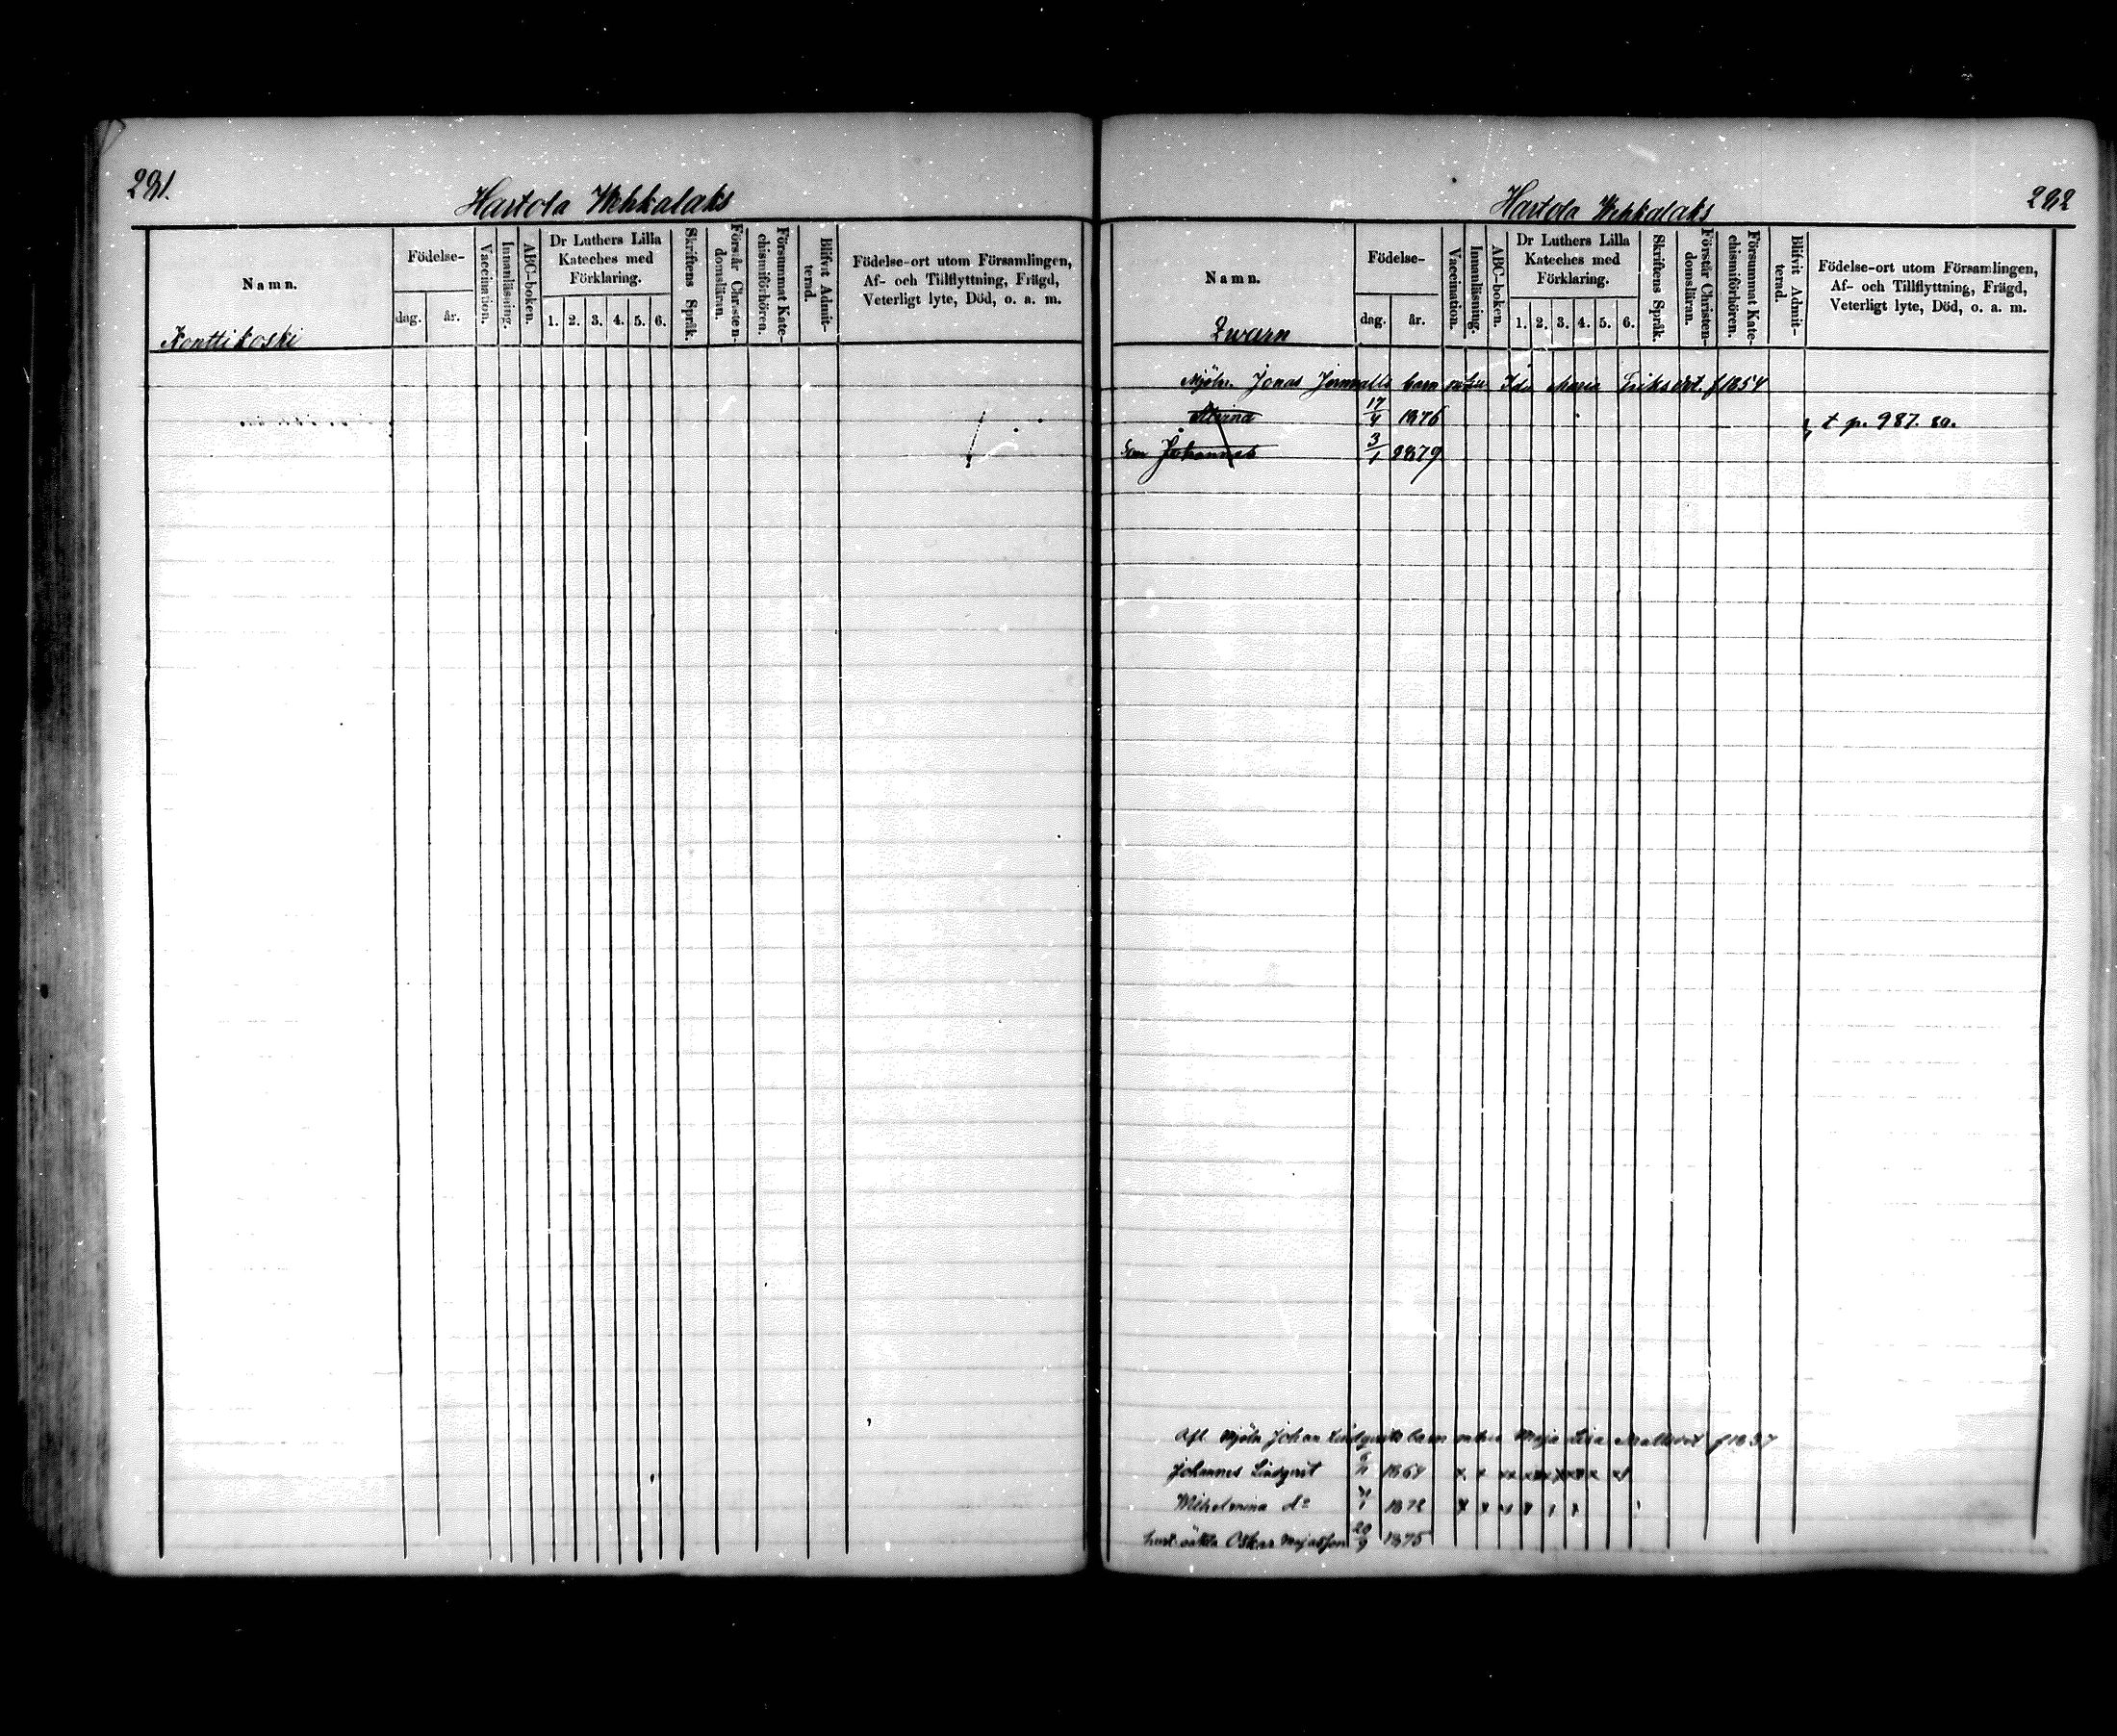 291.
Hartola Wehkalaks
Namn.
Födelse-
dag.
år.
Vaccination.
Innanläsning.
ABC-boken.
Dr Luthers Lilla
Kateches med
Förklaring.
1. 2. 3. 4. 5. 6.
Skriftens Språk.
Förstår Christen-
domsläran.
Försummat Kate-
chismiförhören.
Blifvit Admit-
terad.
Födelse-ort utom Församlingen,
Af- och Tillflyttning, Frägd,
Veterligt lyte, Död, o. a. m.
Konttikoski
Hartola Wehkalaks
292
Namn.
Födelse-
dag.
år.
Vaccination.
Innanläsning.
ABC-boken.
Dr Luthers Lilla
Kateches med
Förklaring.
1. 2. 3. 4. 5. 6.
Skriftens Språk.
Förstår Christen-
domsläran.
Försummat Kate-
chismiförhören.
Blifvit Admit-
terad.
Födelse-ort utom Församlingen,
Af- och Tillflyttning, Frägd,
Veterligt lyte, Död, o. a. m.
Qwarn
Mjöln. Jonas barn Ida Maria Eriksdot. f 1854
17/4 1876 t p. 987. 80.
Son Johannes 3/1 1879
Afl. Mjöln Johan Lindqvists barn Maja Lisa f 1837
Johannes Lindqvist 1864
Wilhelmina do 1872
Oskar Majasson 20/9 1875